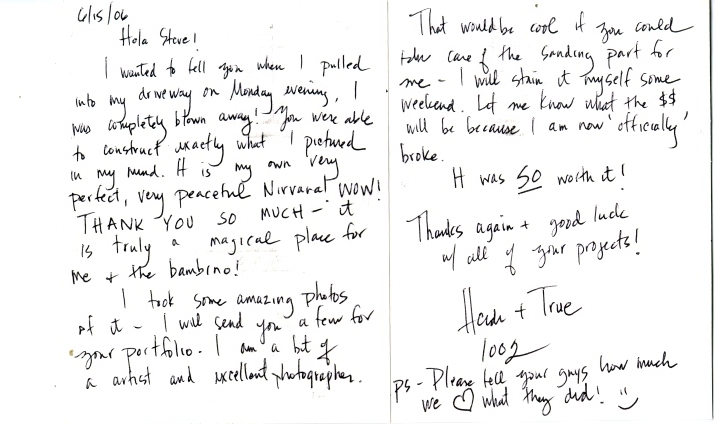 6/15/06
Hola Steve!
I wanted to tell you when I pulled
into my driveway on Monday evening, I
was completely blown away! You were able
to construct exactly what I pictured
in my mind. It is my own very
perfect, very peaceful Nirvana! WOW!
THANK YOU SO MUCH - it
is truly a magical place for
me + the bambino!
I took some amazing photos
of it - I will send you a few for
your portfolio. I am a bit of
a artist and excellent photographer.
That would be cool if you could
take care of the sanding part for
me - I will stain it myself some
weekend. Let me know what the $$
will be because I am now 'officially'
broke.
It was SO worth it!
Thanks again + good luck
w/ all of your projects!
+ True
1002
PS - Please tell your guys how much
we ♡ what they did! :)